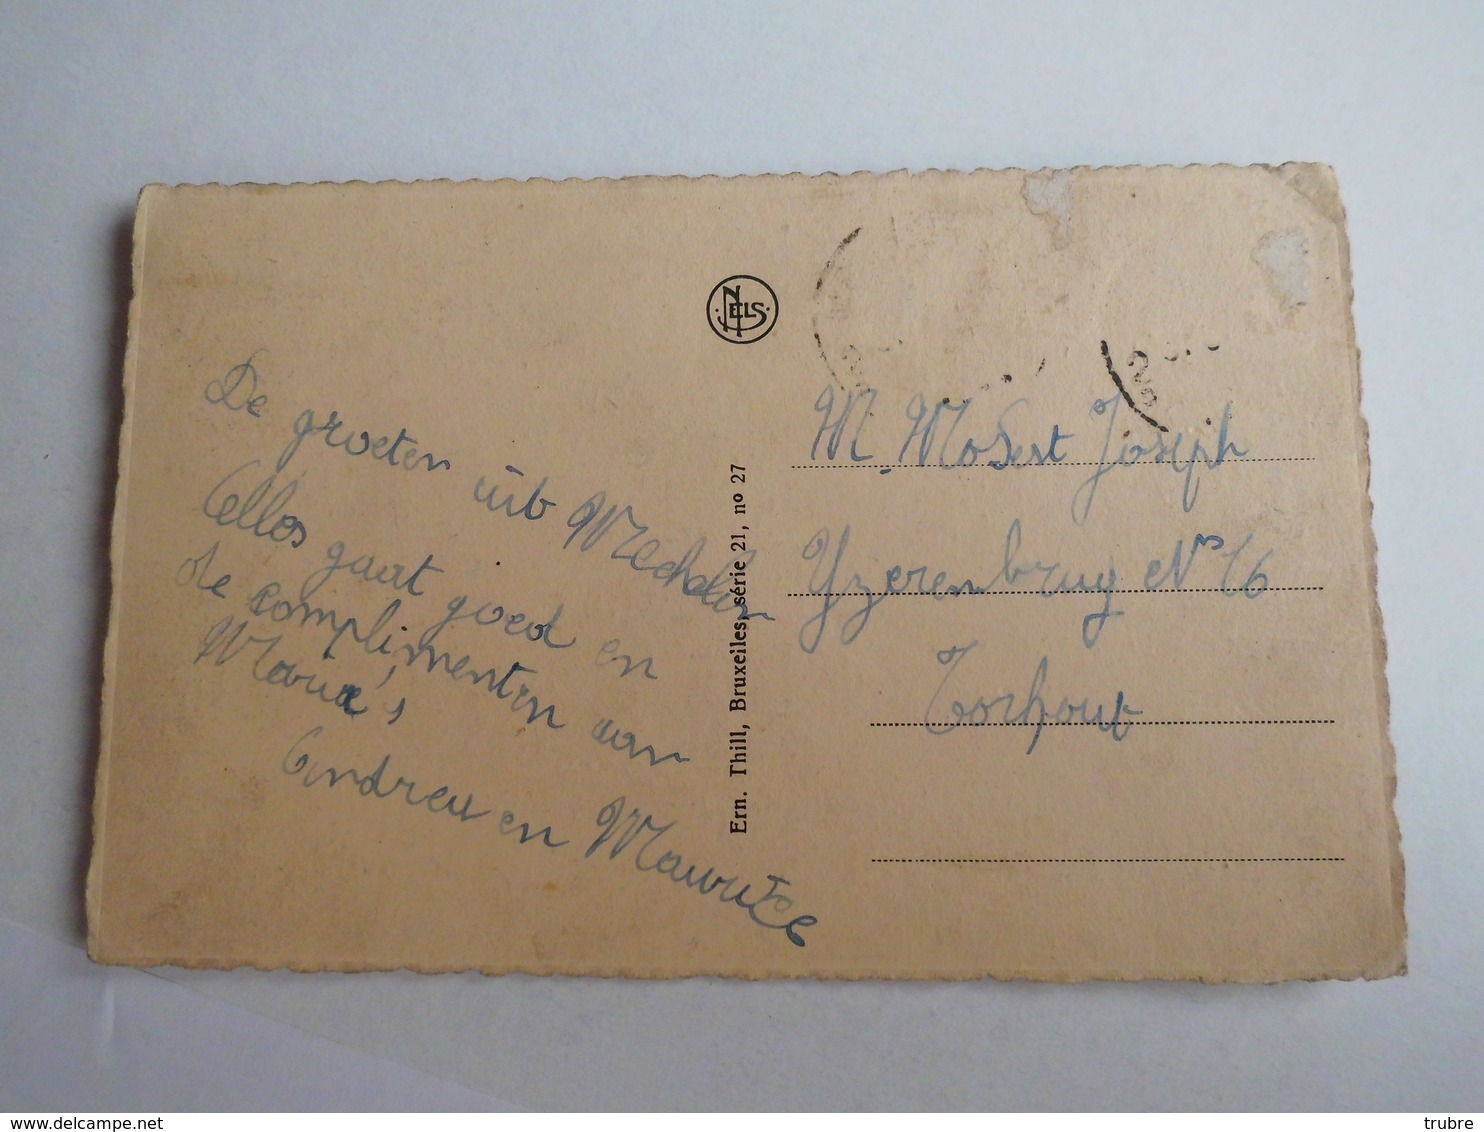 De groeten uit Mechelen
Alles gaat goed en
de complimenten aan
Maria's
Andreu en Maurice
NELS
Ern. Thill, Bruxelles, série 21, no 27
M. Mosert Joseph
Yzerenbrug Nrs 16
Torhout
trubre